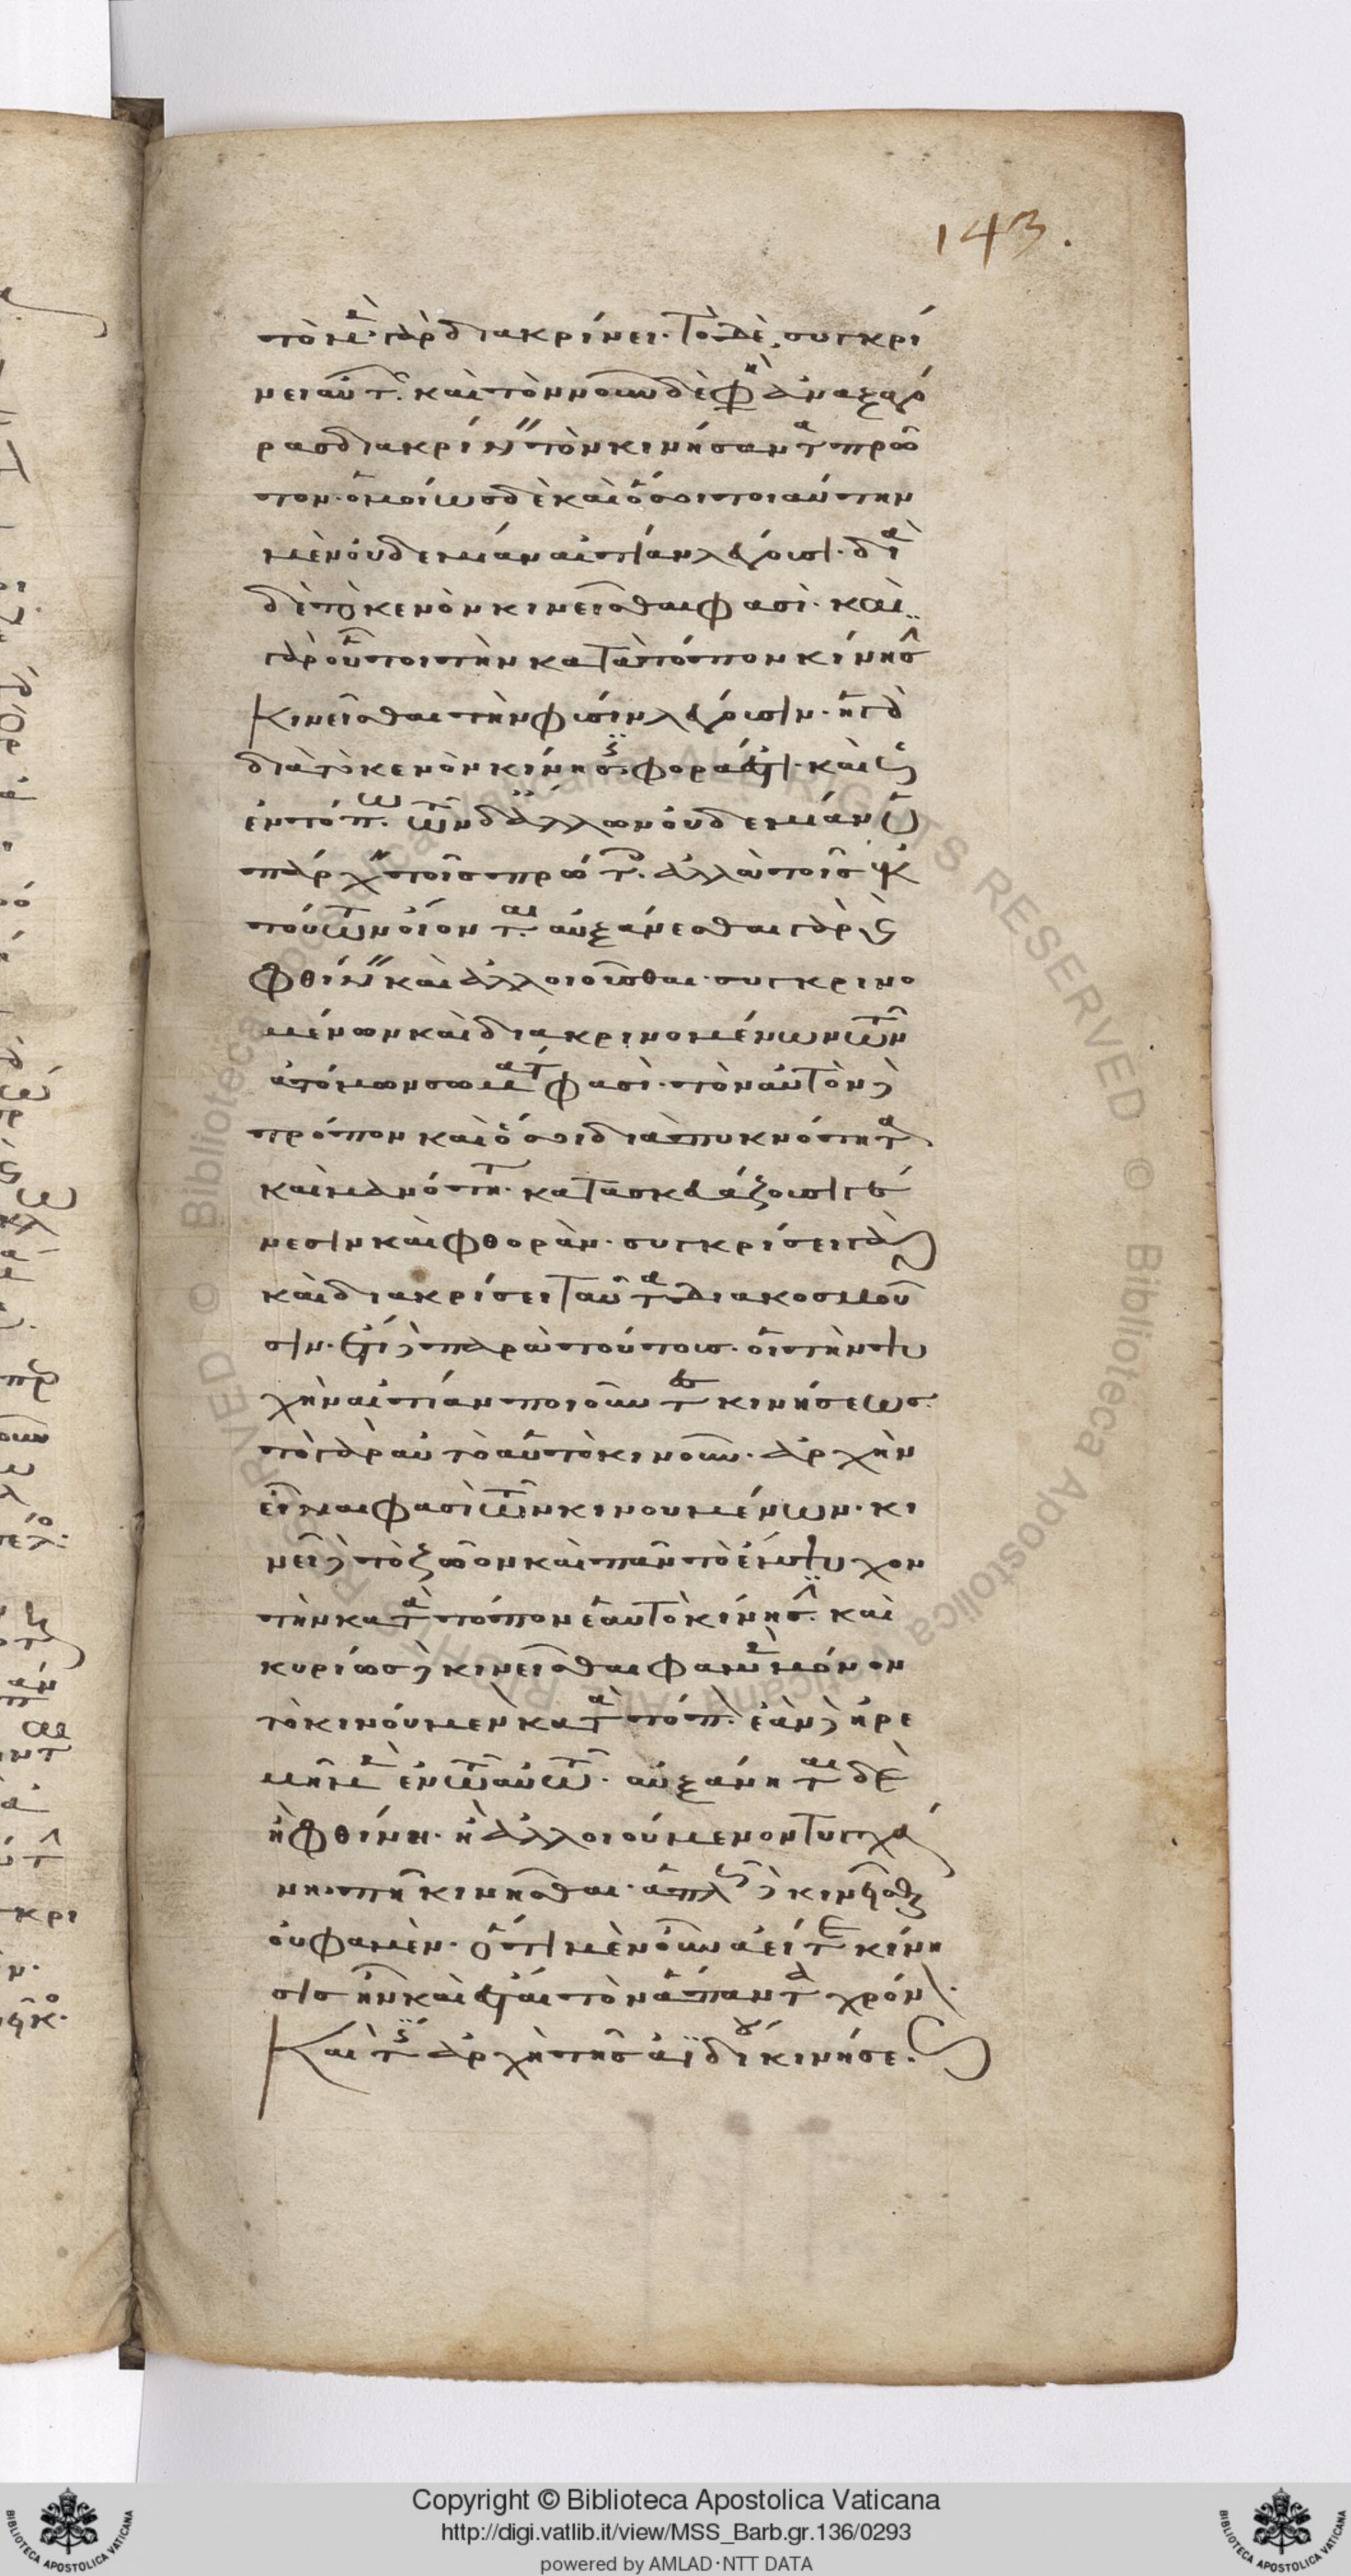 143.
τὸ μὲν γὰρ διακρίνει· τὸ δὲ συγκρί
νει αὐτῶν· καὶ τὸν νοῦν δέ φησιν ἀναξαγό
ρας διακρίνειν τὸν κινήσαντα πρῶ
τον· ὁμοίως δὲ καὶ ὅσοι τοιαύτην
μὲν οὐδεμίαν αἰτίαν λέγουσι· διὰ
δὲ τὸ κενὸν κινεῖσθαι φασί· καὶ
γὰρ οὗτοι τὴν κατὰ τόπον κίνησιν
κινεῖσθαι τὴν φύσιν λέγουσιν· ἡ γὰρ
διὰ τὸ κενὸν κίνησις φορά ἐστι· καὶ ὡς
ἐν τόπω· τῶν δ' ἄλλων οὐδεμίαν ὑ
πάρχειν τοῖς πρώτοις· ἀλλὰ τοῖς ἐκ
τούτων οἴονται· αὐξάνεσθαι γὰρ καὶ
φθίνειν καὶ ἀλλοιοῦσθαι συγκρινο
μένων καὶ διακρινομένων τῶν
ἀτόμων σωμάτων φασί· τὸν αὐτὸν δὲ
τρόπον καὶ ὅσοι διὰ πυκνότητα
καὶ μανότητα κατασκευάζουσι γέ
νεσιν καὶ φθοράν· συγκρίσει γὰρ
καὶ διακρίσει ταῦτα διακοσμοῦ
σιν· ἔτι δὲ παρὰ τούτοις οἱ τὴν ψυ
χὴν αἰτίαν ποιοῦν τες κινήσεως·
τὸ γὰρ αὐτὸ αὑτὸ κινοῦν· ἀρχὴν
εἶναι φασὶ τῶν κινουμένων· κι
νεῖ δὲ τὸ ζῶον καὶ πᾶν τὸ ἔμψυχον
τὴν κατὰ τόπον ἑαυτὸ κίνησιν· καὶ
κυρίως δὲ κινεῖσθαι φαμὲν μόνον
τὸ κινούμενον κατὰ τόπον· ἐὰν δὲ ἠρε
μῆ μὲν ἐν τῶ αὐτῶ· αὐξάνηται δὲ
ἢ φθίνη· ἢ ἀλλοιούμενον τυγχά
νη· πῆ κινῆσθαι· ἁπλῶς δὲ κινεῖσθαι
οὐ φαμέν· ὅτι μὲν οὖν ἀεί τε κίνη
σις ἦν καὶ ἔσται τὸν ἅπαντα χρόνον·
Καὶ τίς ἀρχὴ τῆς ἀϊδίου κινήσεως